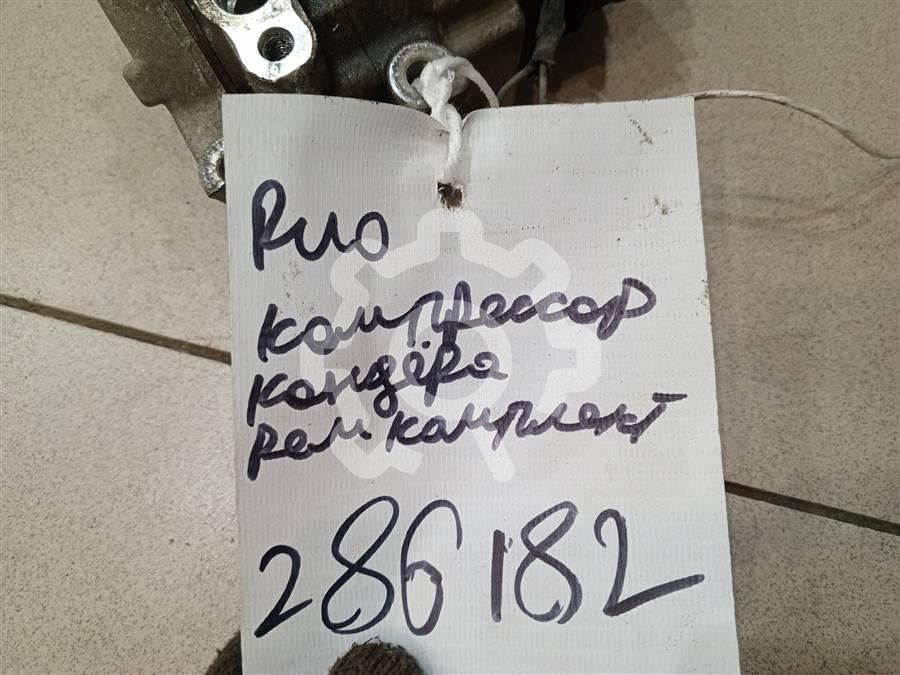 Рио
компрессор
кондёра
рем. комплект
286182